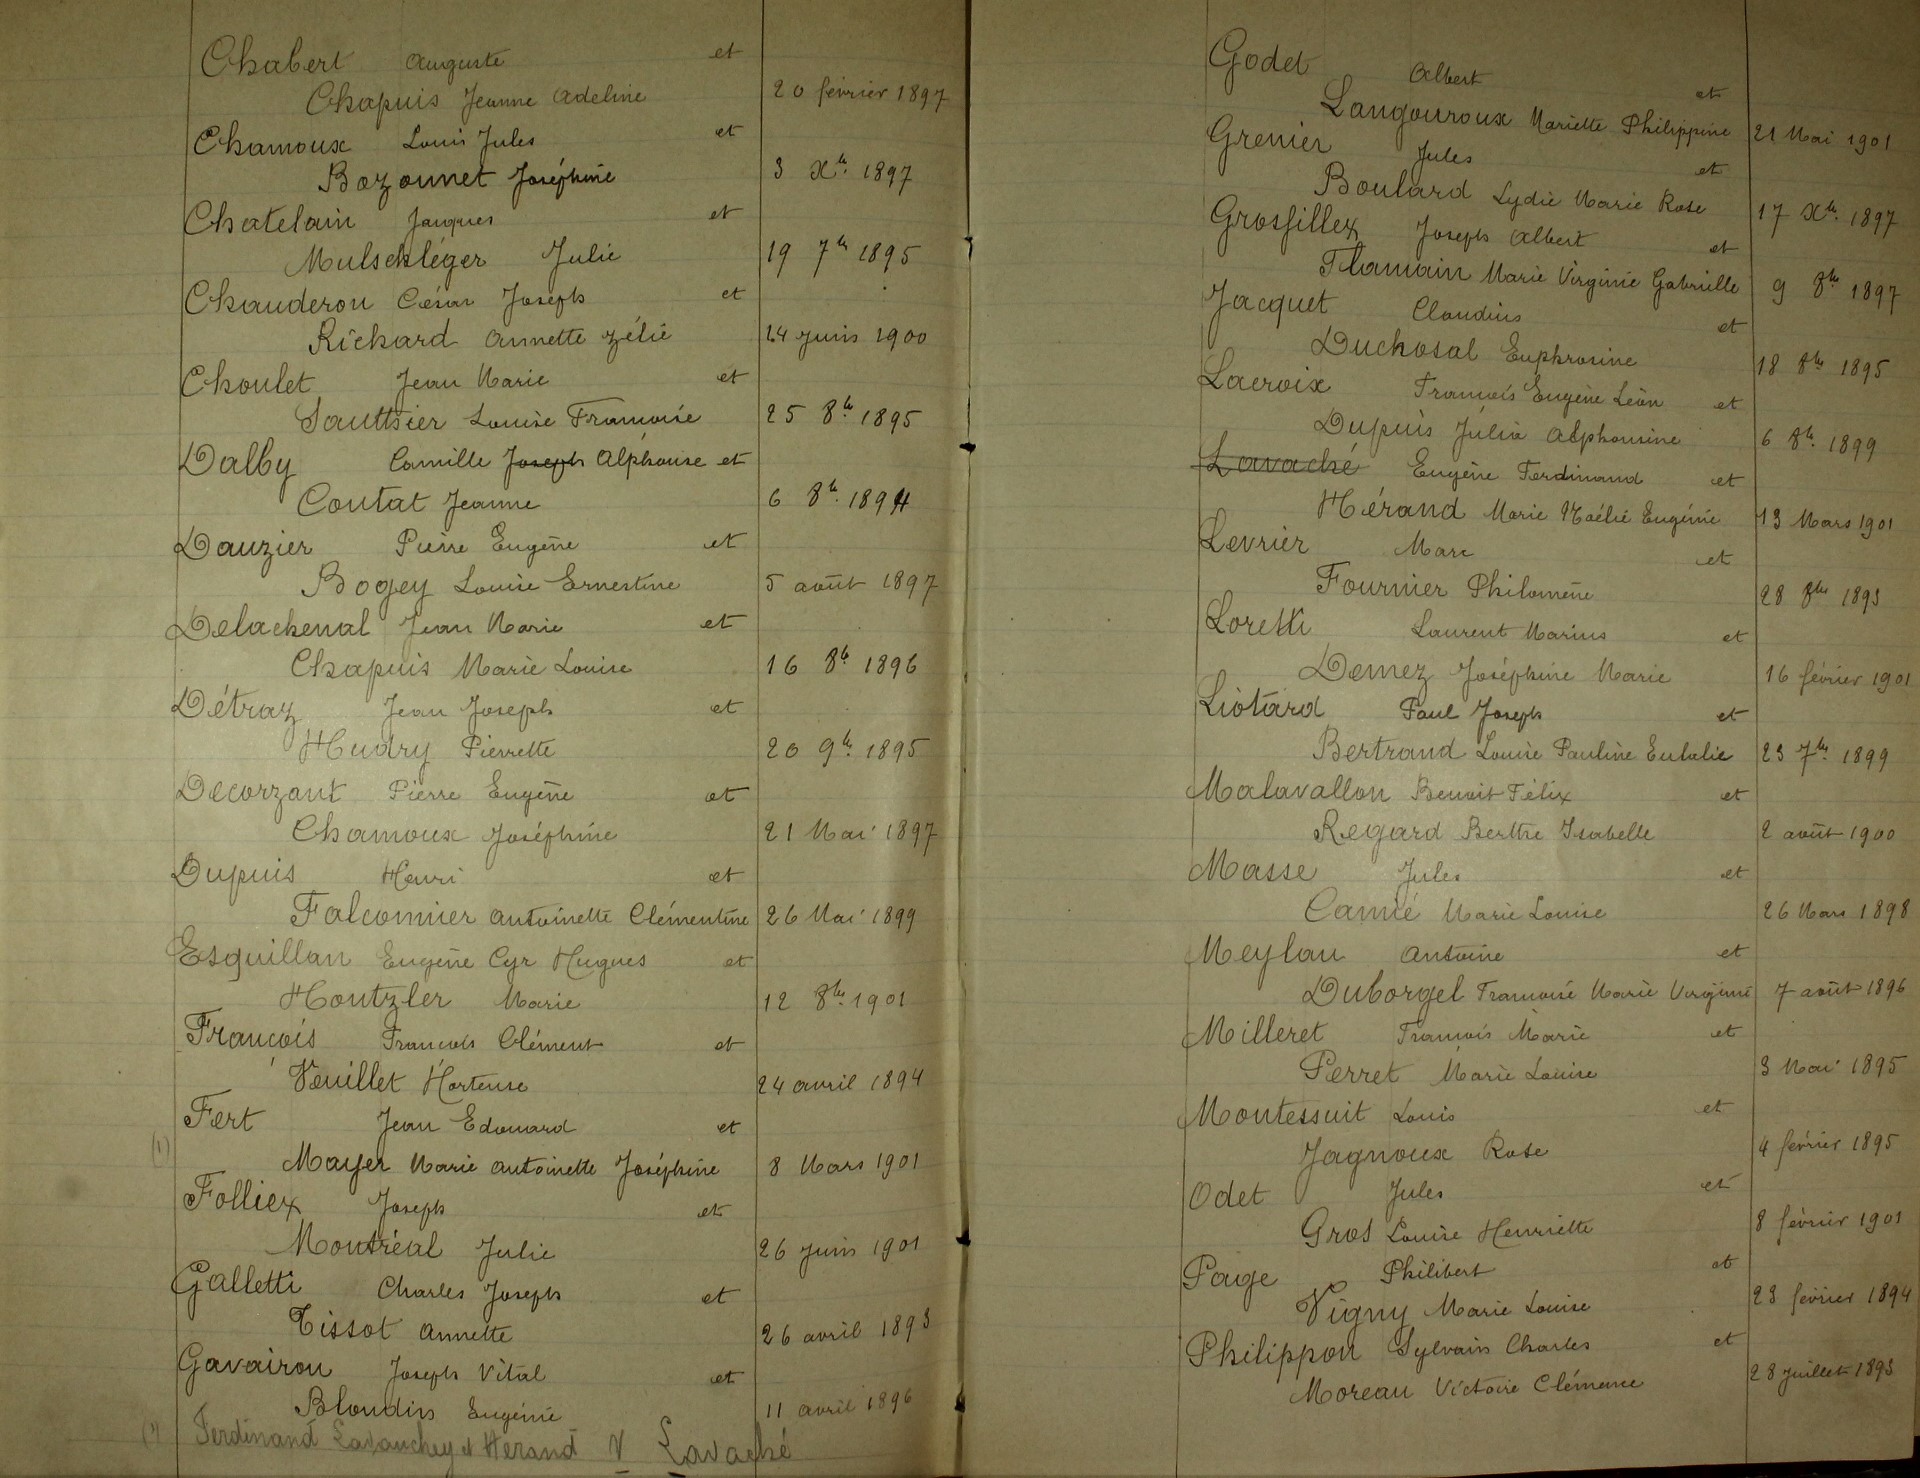 Chabert Auguste et
Chapuis Jeanne Adeline 20 février 1897
Chamoux Louis Jules et
Bozonnet Joséphine 3 Xbre 1897
Chatelain Jacques et
Mulschléger Julie 19 7bre 1895
Chauderon César Joseph et
Richard Annette Zélie 14 Juin 1900
Choulet Jean Marie et
Sauttier Louise Françoise 25 8bre 1895
Dalby Camille Joseph Alphonse et
Coutat Jeanne 6 8bre 1894
Dauzier Pierre Eugène et
Bogey Louise Ernestine 5 août 1897
Delachenal Jean Marie et
Chapuis Marie Louise 16 8bre 1896
Détraz Jean Joseph et
Hudry Pierrette 20 9bre 1895
Decorzant Pierre Eugène et
Chamoux Joséphine 21 Mai 1897
Dupuis Henri et
Falconnier Antoinette Clémentine 26 Mai 1899
Esquillan Eugène Cyr Hugues et
Hontzler Marie 12 8bre 1901
François François Clément et
Veuillet Hortense 24 avril 1894
Fert Jean Edouard et
(1) Mayer Marie Antoinette Joséphine 8 Mars 1901
Folliex Joseph et
Montréal Julie 26 Juin 1901
Galletti Charles Joseph et
Tissot Annette 26 avril 1893
Gavairon Joseph Vital et
Blondin Eugénie 11 avril 1896
(1) Ferdinand Lavauchey et Hérand V Lavaché
Godet Albert et
Langouroux Mariette Philippine 21 Mai 1901
Grenier Jules et
Boulard Lydie Marie Rose 17 Xbre 1897
Grosfillex Joseph Albert et
Flamain Marie Virginie Gabrielle 9 8bre 1897
Jacquet Claudius et
Duchosal Euphrosine 18 8bre 1895
Lacroix François Eugène Léon et
Dupuis Julia Alphonsine 6 8bre 1899
Lavaché Eugène Ferdinand et
Hérand Marie Noélie Eugénie 13 Mars 1901
Levrier Marc et
Fournier Philomène 28 8bre 1893
Loretti Laurent Marius et
Demez Joséphine Marie 16 février 1901
Liotard Paul Joseph et
Bertrand Louise Pauline Eulalie 23 7bre 1899
Malavallon Benoit Félix et
Regard Berthe Isabelle 2 août 1900
Masse Jules et
Camié Marie Louise 26 Mars 1898
Meylan Antoine et
Duborgel Françoise Marie Virginie 7 août 1896
Milleret François Marie et
Perret Marie Louise 3 Mai 1895
Montessuit Louis et
Jagnoux Rose 4 février 1895
Odet Jules et
Gros Louise Henriette 8 février 1901
Page Philibert et
Vigny Marie Louise 23 février 1894
Philippon Sylvain Charles et
Moreau Victoire Clémence 28 Juillet 1893